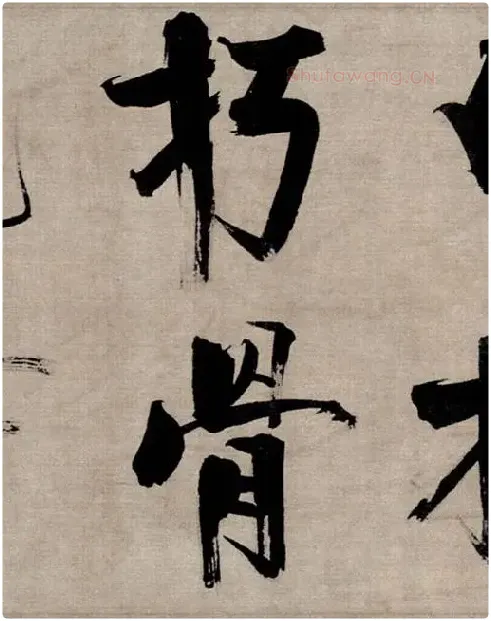 朽
骨
Shufawang.CN